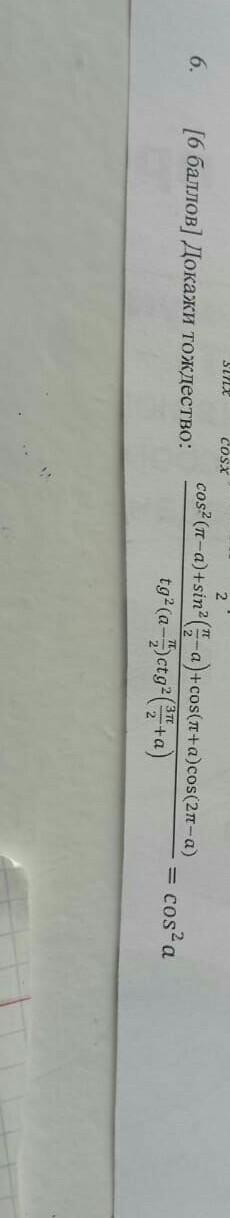 sinx cosx 2
6. [6 баллов] Докажи тождество: \frac{cos²(π−a)+sin²(\frac{π}{2}−a)+cos(π+a)cos(2π−a)}{tg²(a−\frac{π}{2})ctg²(\frac{3π}{2}+a)} = cos²a